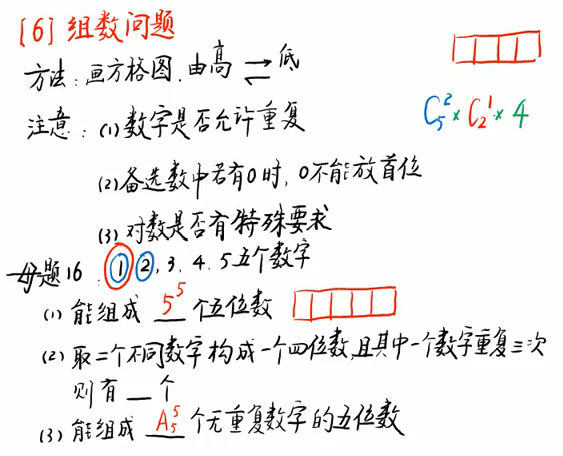 [6] 组数问题
方法：画方格图.由高⇌低
注意：(1)数字是否允许重复
C₅²×C₂¹×4
(2)备选数中若有0时，0不能放首位
(3)对数是否有特殊要求
母题16：1，2，3．4．5五个数字
(1)能组成 5⁵ 个五位数
(2)取二个不同数字构成一个四位数，且其中一个数字重复三次
则有__个
(3)能组成 A₅⁵ 个无重复数字的五位数